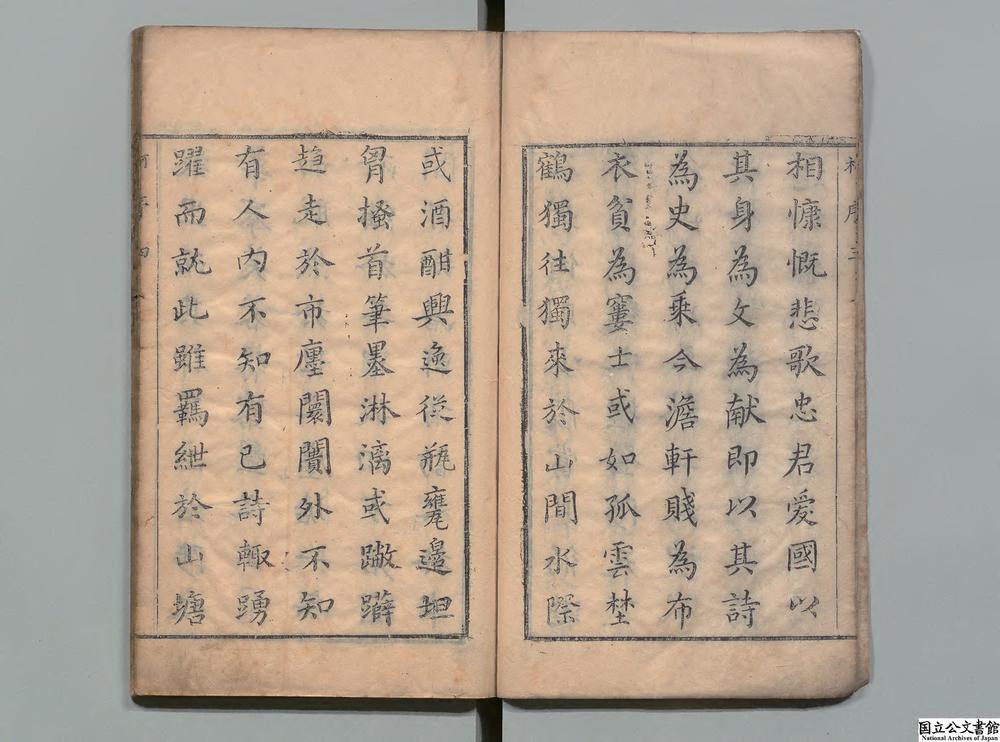 序三
相慷慨悲歌忠君爱國以
其身為文為献即以其詩
為史為乘今澹軒賤為布
衣貧為窶士或如孤雲埜
鶴獨往獨來於山間水際
或酒酣興逸從瓶甕邊坦
胷搔首筆墨淋漓或躃
趋走於市廛闤闠外不知
有人内不知有已詩輙踴
躍而就此雖羈紲於山塘
序四
国立公文書館
National Archives of Japan